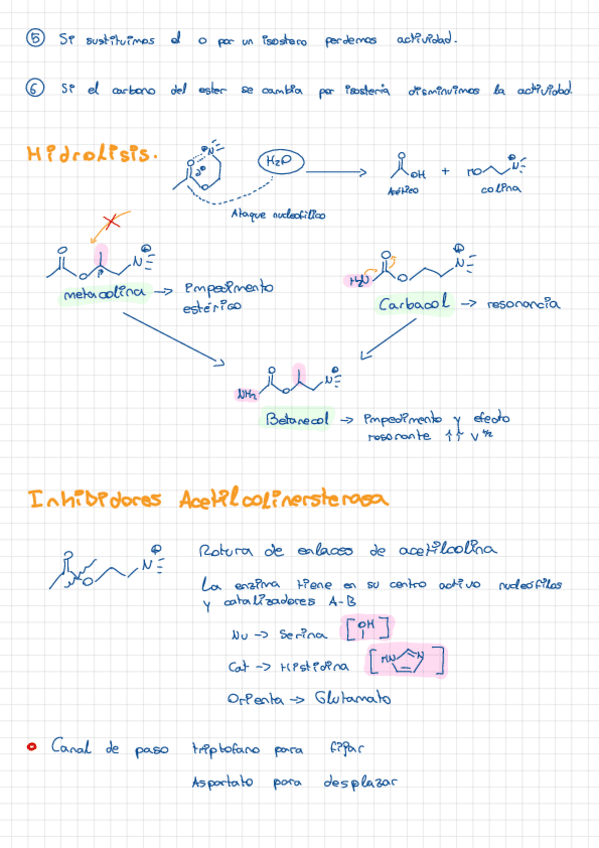 5 Si sustituimos el o por un isostero perdemos actividad.
6 Si el carbono del ester se cambia por isosteria disminuimos la actividad.
Hidrolisis.
H2O
OH + HO N
Acético colina
Ataque nucleofílico
metacolina → Impedimento estérico
H2N
Carbacol → resonancia
NH2
Betanecol → Impedimento y efecto
resonante ↑↑ V 1/2
Inhibidores Acetilcolinersterasa
Rotura de enlaces de acetilcolina
La enzima tiene en su centro activo nucleofilos
y catalizadores A-B
Nu → Serina [OH]
Cat → Histidina [HN N]
Orienta → Glutamato
Canal de paso triptofano para fijar
Aspartato para desplazar